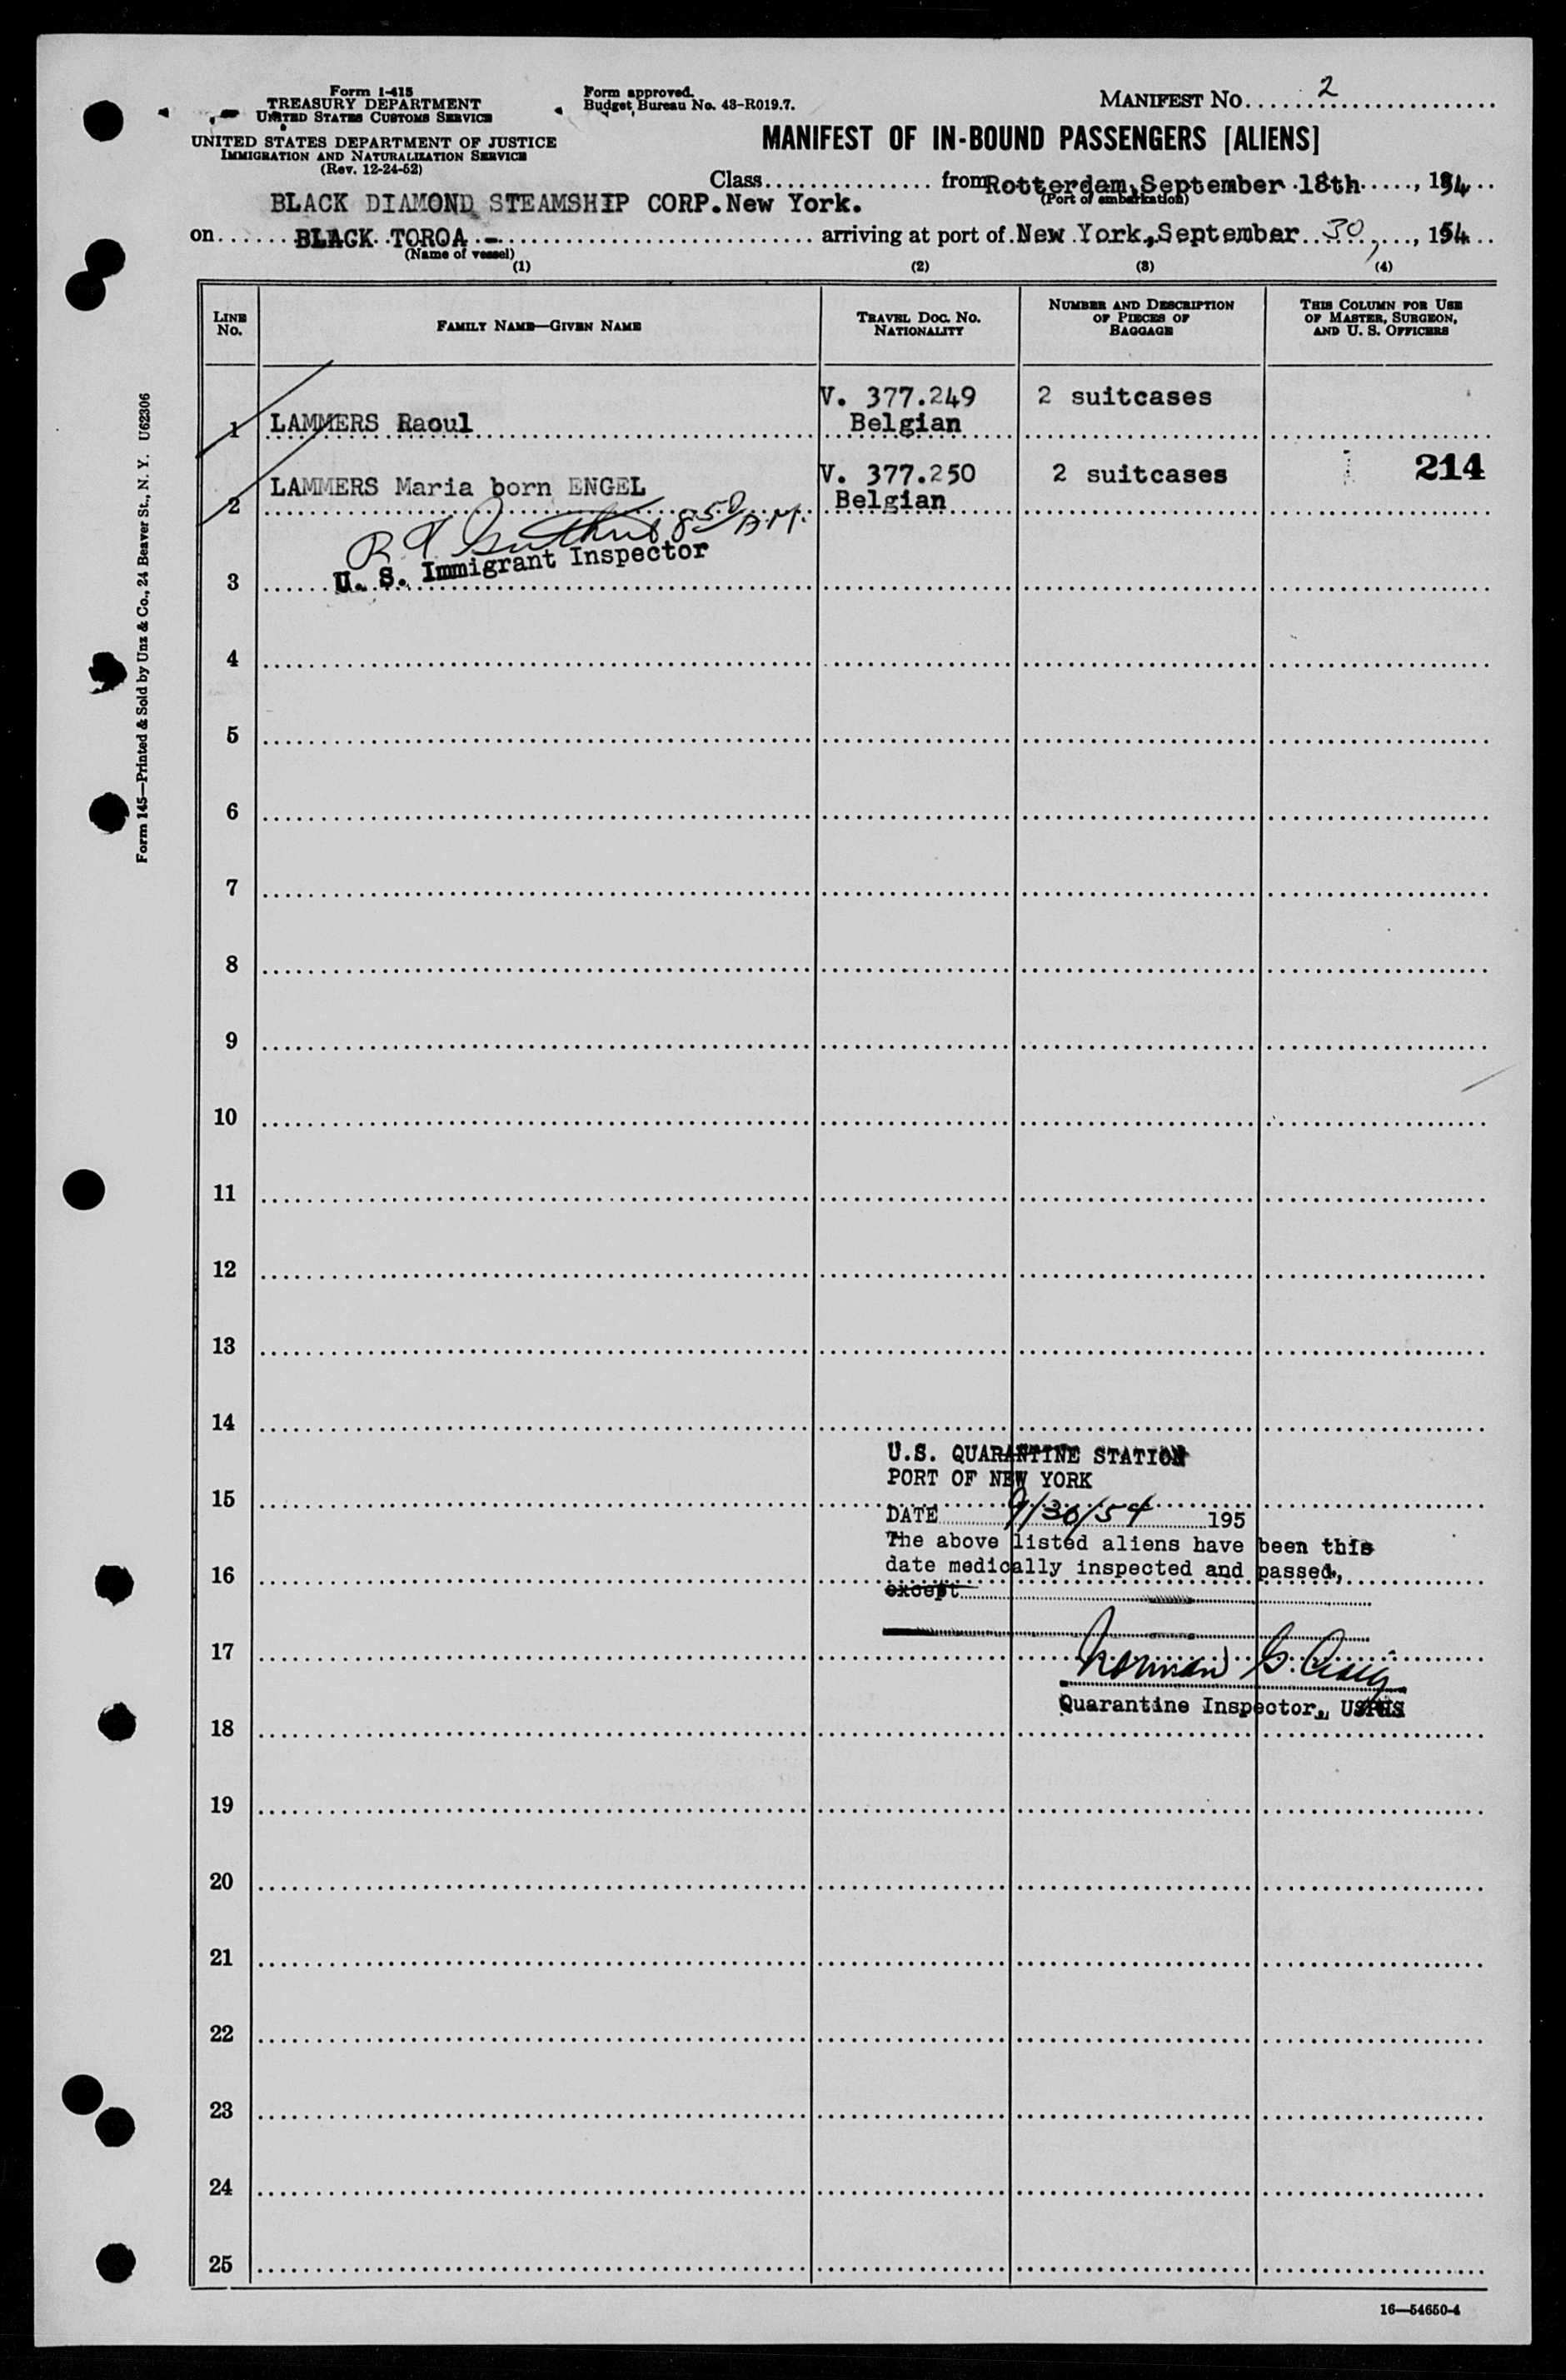 Form I-415
TREASURY DEPARTMENT
UNITED STATES CUSTOMS SERVICE
UNITED STATES DEPARTMENT OF JUSTICE
IMMIGRATION AND NATURALIZATION SERVICE
(Rev. 12-24-52)
Form approved.
Budget Bureau No. 43-R019.7.
MANIFEST No. 2
MANIFEST OF IN-BOUND PASSENGERS [ALIENS]
Class from Rotterdam, September 18th, 1954
(Port of embarkation)
BLACK DIAMOND STEAMSHIP CORP. New York.
on BLACK TOROA - arriving at port of New York, September 30, 1954
(Name of vessel)
(1) (2) (3) (4)
LINE No. FAMILY NAME—GIVEN NAME TRAVEL DOC. NO. NATIONALITY NUMBER AND DESCRIPTION OF PIECES OF BAGGAGE THIS COLUMN FOR USE OF MASTER, SURGEON, AND U. S. OFFICERS
1 LAMMERS Raoul V. 377.249 Belgian 2 suitcases
2 LAMMERS Maria born ENGEL V. 377.250 Belgian 2 suitcases 214
850 A.M.
U. S. Immigrant Inspector
3
4
5
6
7
8
9
10
11
12
13
14
U.S. QUARANTINE STATION
PORT OF NEW YORK
15
DATE 9/30/54 195
The above listed aliens have been this
date medically inspected and passed,
16
except
17
Norman G.
Quarantine Inspector, USPHS
18
19
20
21
22
23
24
25
16—54650-4
Form 145—Printed & Sold by Unz & Co., 24 Beaver St., N. Y. U62306